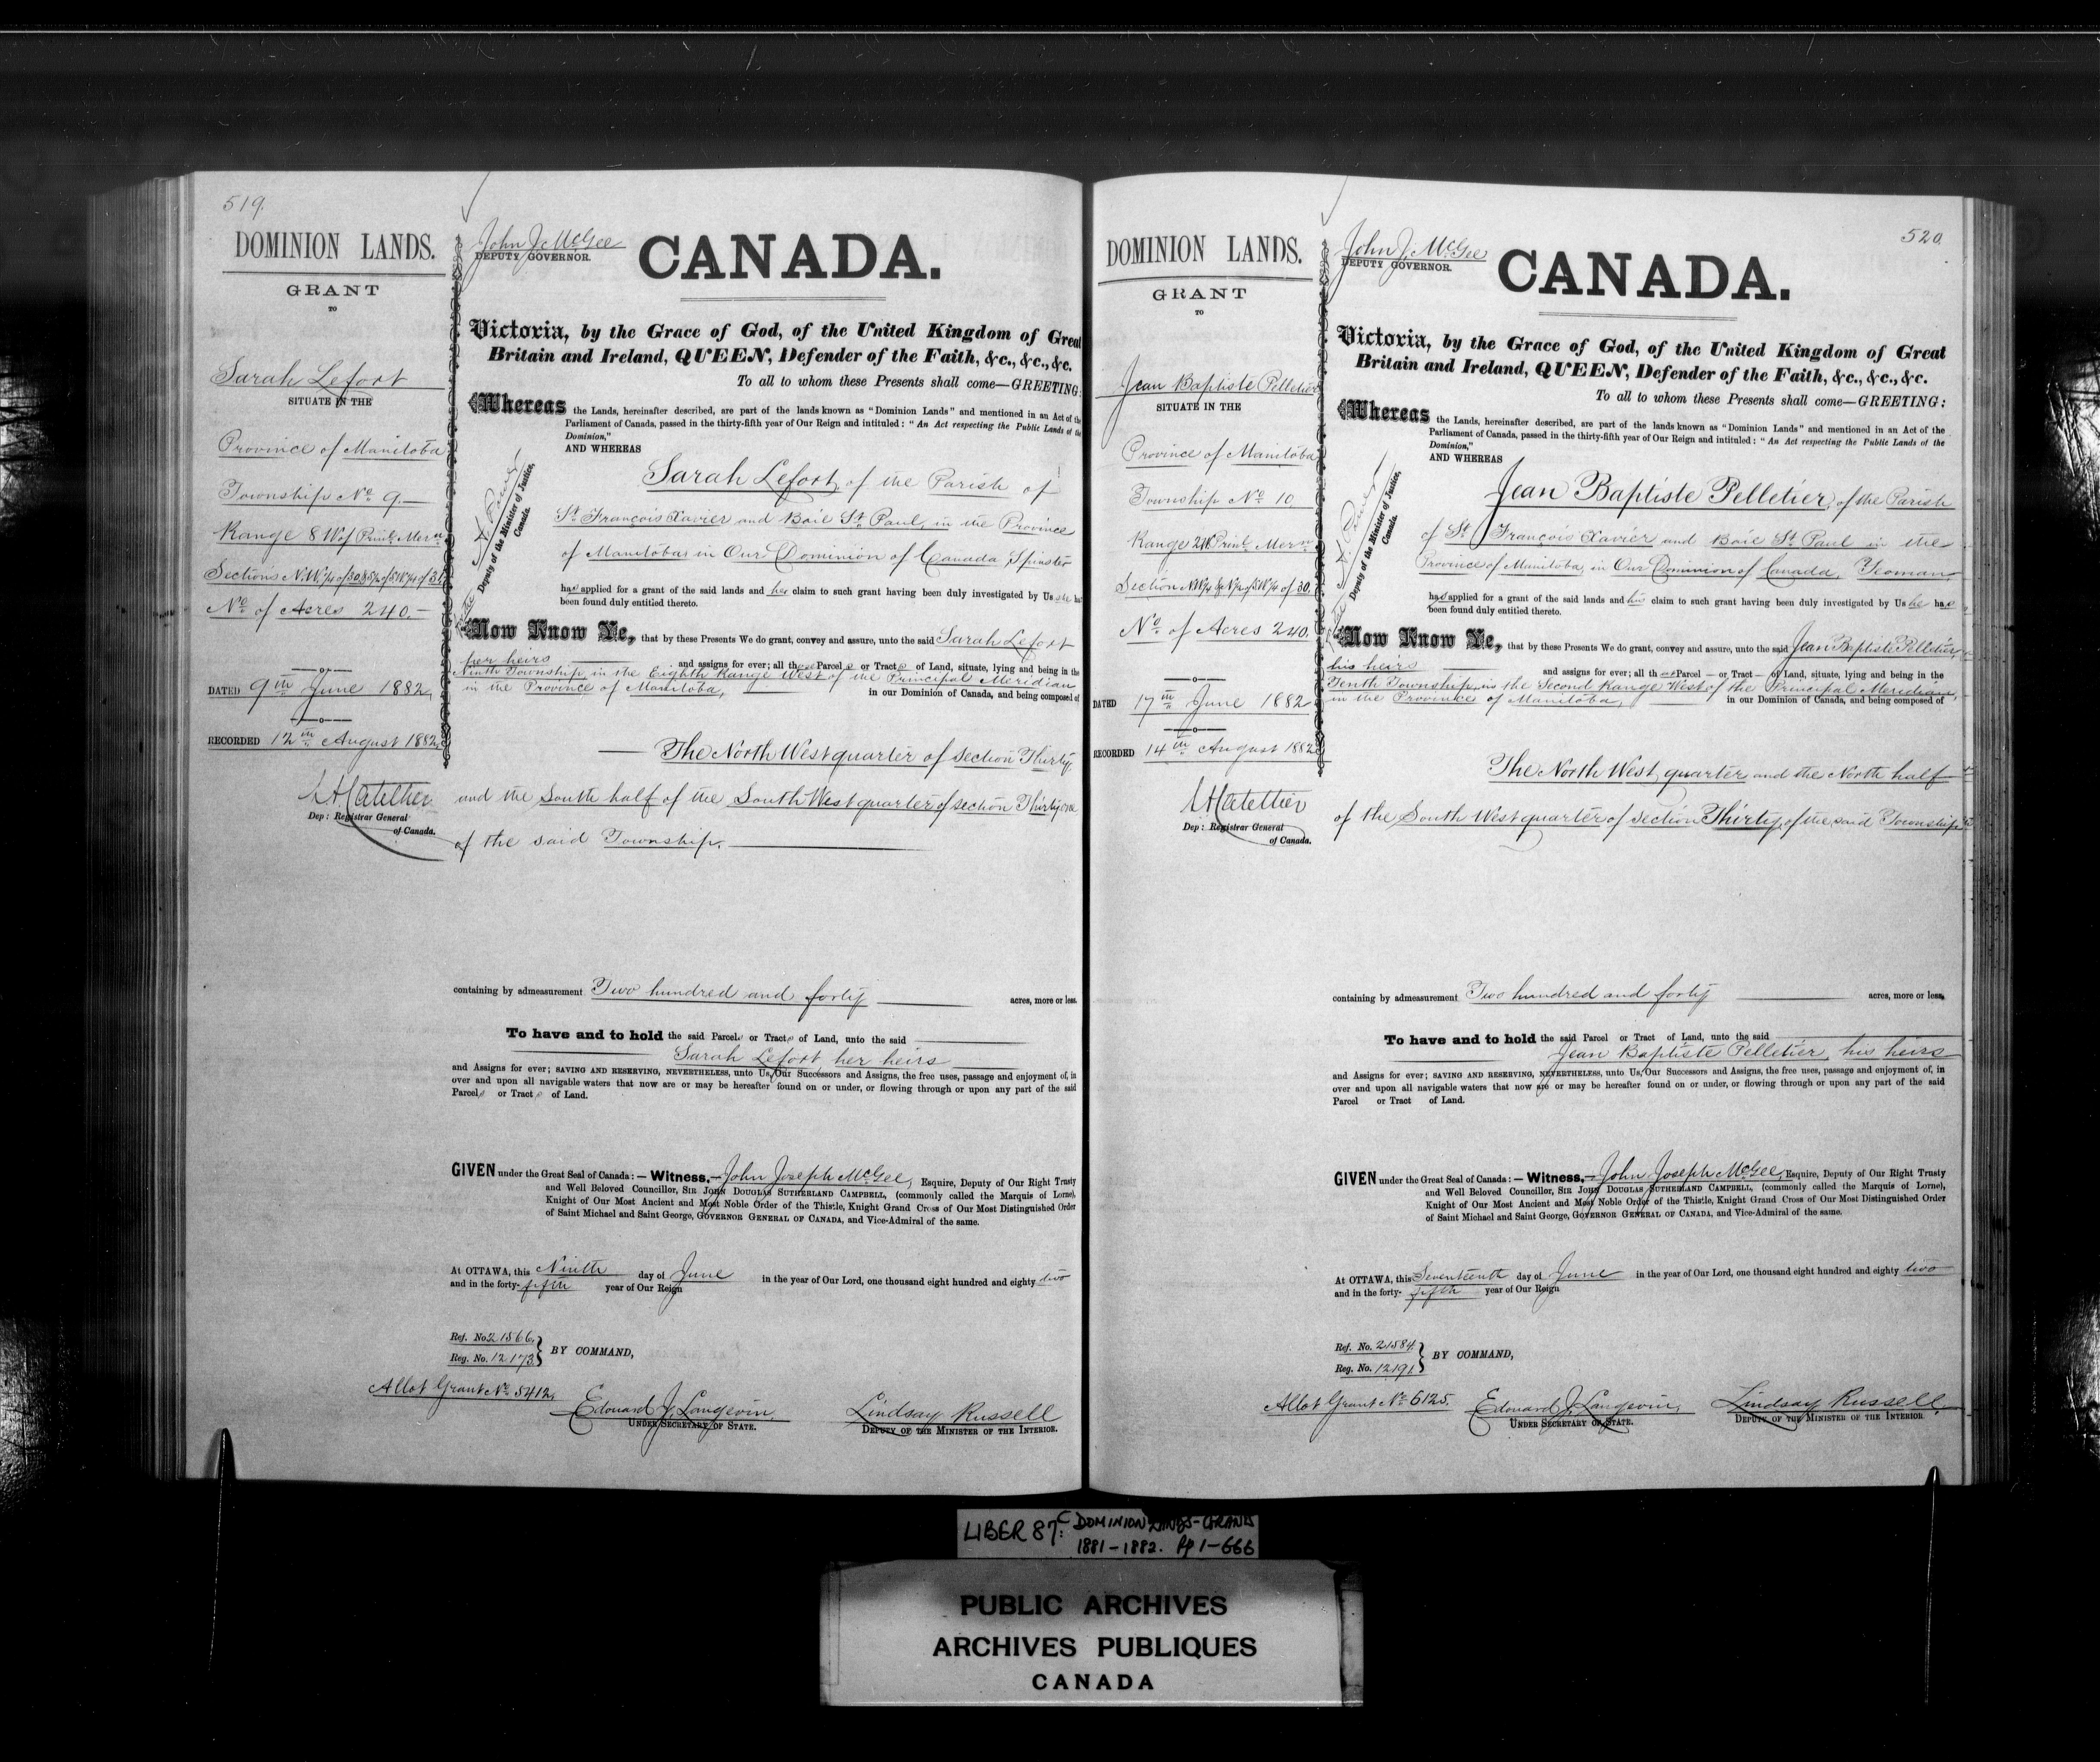 519.
DOMINION LANDS.
GRANT
TO
Sarah Lefort
SITUATE IN THE
Province of Manitoba
Township No. 9
Range 8 W of Prinl. Mern.
Sections N.W.¼ of 30 & S½ of S.W.¼ of 31
No. of Acres 240.
DATED 9th June 1882,
RECORDED 12th August 1882,
Dep: Registrar General
of Canada.
John J. McGee
DEPUTY GOVERNOR.
CANADA.
Victoria, by the Grace of God, of the United Kingdom of Great
Britain and Ireland, QUEEN, Defender of the Faith, &c., &c., &c.
To all to whom these Presents shall come—GREETING:
Whereas the Lands, hereinafter described, are part of the lands known as "Dominion Lands" and mentioned in an Act of the
Parliament of Canada, passed in the thirty-fifth year of Our Reign and intituled: "An Act respecting the Public Lands of the
Dominion,"
AND WHEREAS
Deputy of the Minister of Justice,
Canada.
Sarah Lefort, of the Parish of
St. François Xavier and Baie St. Paul, in the Province
of Manitoba in Our Dominion of Canada, Spinster
has applied for a grant of the said lands and her claim to such grant having been duly investigated by Us she has
been found duly entitled thereto.
Now Know Ye, that by these Presents We do grant, convey and assure, unto the said Sarah Lefort
her heirs and assigns for ever; all those Parcels or Tracts of Land, situate, lying and being in the
Ninth Township in the Eighth Range West of the Principal Meridian
in the Province of Manitoba, in our Dominion of Canada, and being composed of
The North West quarter of section Thirty
and the South half of the South West quarter of section Thirty one
of the said Township.
containing by admeasurement Two hundred and forty acres, more or less.
To have and to hold the said Parcels or Tracts of Land, unto the said
Sarah Lefort her heirs
and Assigns for ever; SAVING AND RESERVING, NEVERTHELESS, unto Us, Our Successors and Assigns, the free uses, passage and enjoyment of, in
over and upon all navigable waters that now are or may be hereafter found on or under, or flowing through or upon any part of the said
Parcels or Tracts of Land.
GIVEN under the Great Seal of Canada:— Witness,—John Joseph McGee, Esquire, Deputy of Our Right Trusty
and Well Beloved Councillor, SIR JOHN DOUGLAS SUTHERLAND CAMPBELL, (commonly called the Marquis of Lorne),
Knight of Our Most Ancient and Most Noble Order of the Thistle, Knight Grand Cross of Our Most Distinguished Order
of Saint Michael and Saint George, GOVERNOR GENERAL OF CANADA, and Vice-Admiral of the same.
At OTTAWA, this Ninth day of June in the year of Our Lord, one thousand eight hundred and eighty two
and in the forty-fifth year of Our Reign
Ref. No. 21566.
Reg. No. 12173.
BY COMMAND,
Allot Grant No. 5412.
Edouard J. Langevin
UNDER SECRETARY OF STATE.
Lindsay Russell
DEPUTY OF THE MINISTER OF THE INTERIOR.
520.
DOMINION LANDS.
GRANT
TO
Jean Baptiste Pelletier
SITUATE IN THE
Province of Manitoba
Township No. 10
Range 2 W Prinl. Mern.
Section N.W.¼ & N½ of S.W.¼ of 30.
No. of Acres 240.
DATED 17th June 1882
RECORDED 14th August 1882
Dep: Registrar General
of Canada.
John J. McGee
DEPUTY GOVERNOR.
CANADA.
Victoria, by the Grace of God, of the United Kingdom of Great
Britain and Ireland, QUEEN, Defender of the Faith, &c., &c., &c.
To all to whom these Presents shall come—GREETING:
Whereas the Lands, hereinafter described, are part of the lands known as "Dominion Lands" and mentioned in an Act of the
Parliament of Canada, passed in the thirty-fifth year of Our Reign and intituled: "An Act respecting the Public Lands of the
Dominion,"
AND WHEREAS
Deputy of the Minister of Justice,
Canada.
Jean Baptiste Pelletier, of the Parish
of St. François Xavier and Baie St. Paul in the
Province of Manitoba, in Our Dominion of Canada, Yeoman,
has applied for a grant of the said lands and his claim to such grant having been duly investigated by Us he has
been found duly entitled thereto.
Now Know Ye, that by these Presents We do grant, convey and assure, unto the said Jean Baptiste Pelletier,
his heirs and assigns for ever; all that Parcel or Tract of Land, situate, lying and being in the
Tenth Township, in the Second Range West of the Principal Meridian,
in the Province of Manitoba, in our Dominion of Canada, and being composed of
The North West quarter and the North half
of the South West quarter of section Thirty, of the said Township
containing by admeasurement Two hundred and forty acres, more or less,
To have and to hold the said Parcel or Tract of Land, unto the said
Jean Baptiste Pelletier, his heirs
and Assigns for ever; SAVING AND RESERVING, NEVERTHELESS, unto Us, Our Successors and Assigns, the free uses, passage and enjoyment of, in
over and upon all navigable waters that now are or may be hereafter found on or under, or flowing through or upon any part of the said
Parcel or Tract of Land.
GIVEN under the Great Seal of Canada:— Witness,—John Joseph McGee, Esquire, Deputy of Our Right Trusty
and Well Beloved Councillor, SIR JOHN DOUGLAS SUTHERLAND CAMPBELL, (commonly called the Marquis of Lorne),
Knight of Our Most Ancient and Most Noble Order of the Thistle, Knight Grand Cross of Our Most Distinguished Order
of Saint Michael and Saint George, GOVERNOR GENERAL OF CANADA, and Vice-Admiral of the same.
At OTTAWA, this Seventeenth day of June in the year of Our Lord, one thousand eight hundred and eighty two
and in the forty-fifth year of Our Reign
Ref. No. 21584.
Reg. No. 12191.
BY COMMAND,
Allot Grant No. 6125.
Edouard J. Langevin,
UNDER SECRETARY OF STATE.
Lindsay Russell.
DEPUTY OF THE MINISTER OF THE INTERIOR
LIBER 87C: DOMINION LANDS-GRANTS
1881-1882. Pp 1-666
PUBLIC ARCHIVES
ARCHIVES PUBLIQUES
CANADA